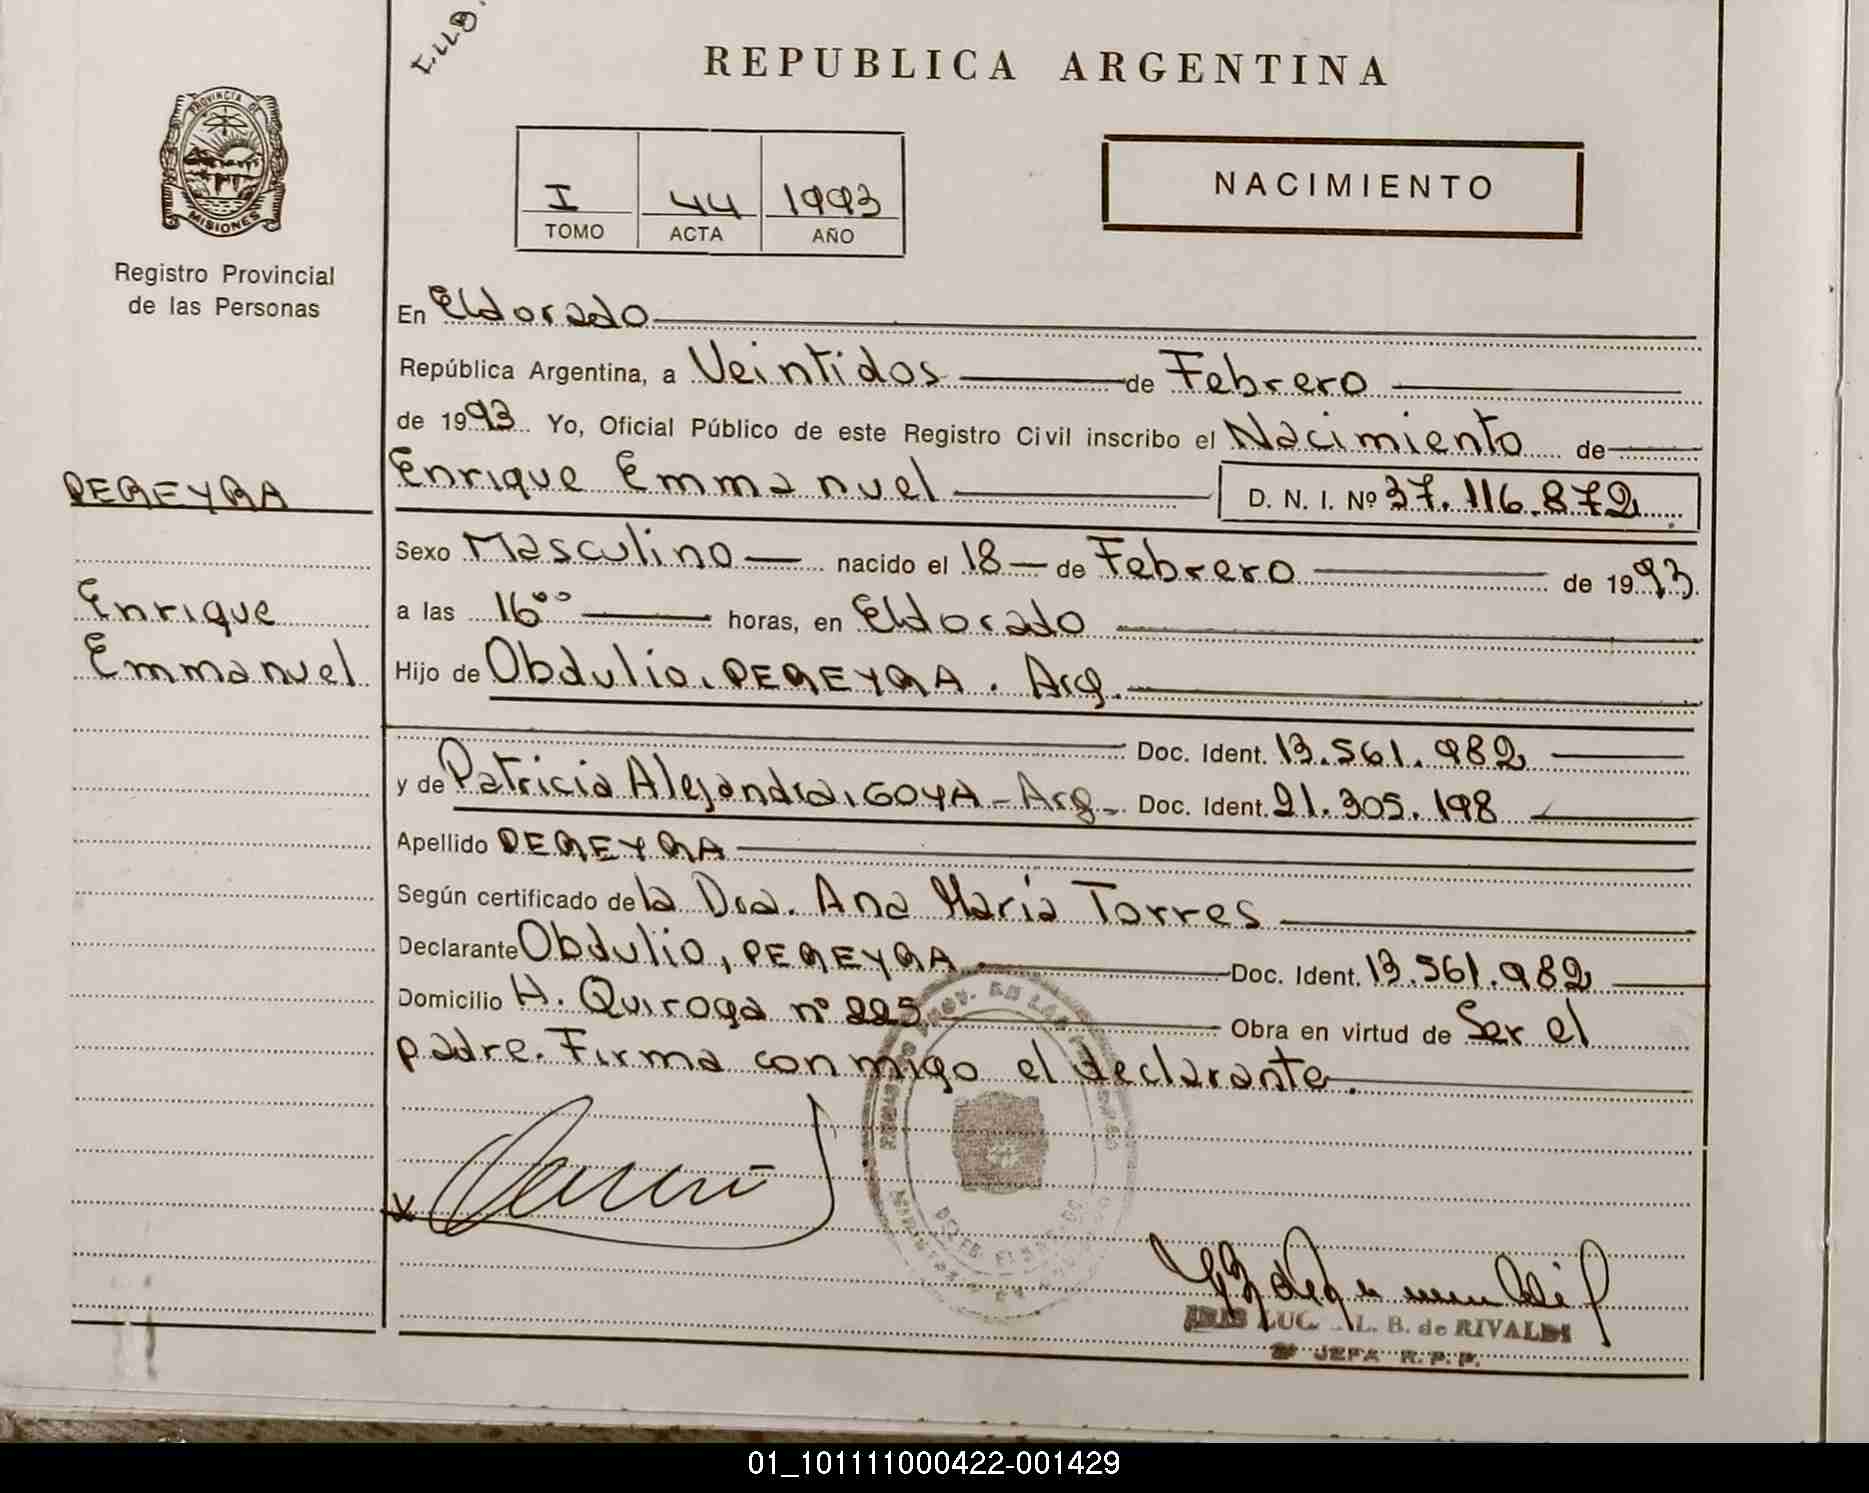 E.LL.B.
REPUBLICA ARGENTINA
PROVINCIA DE
MISIONES
Registro Provincial
de las Personas
I 44 1993
TOMO ACTA AÑO
NACIMIENTO
En Eldorado
República Argentina, a Veintidos de Febrero
de 1993 Yo, Oficial Público de este Registro Civil inscribo el Nacimiento de
PEREYRA
Enrique Emmanuel D. N. I. Nº 37.116.872
Sexo Masculino nacido el 18 de Febrero de 1993
Enrique
a las 16°° horas, en Eldorado
Emmanuel
Hijo de Obdulio, PEREYRA. Arg.
Doc. Ident. 13.561.982
y de Patricia Alejandra, GOYA - Arg - Doc. Ident. 21.305.198
Apellido PEREYRA
Según certificado de la Dra. Ana María Torres
Declarante Obdulio, PEREYRA Doc. Ident. 13.561.982
Domicilio H. Quiroga nº 225 Obra en virtud de Ser el
padre. Firma conmigo el declarante.
PROV. DE LAS
L. B. de RIVALDI
2ª JEFA R.P.P.
01_101111000422-001429